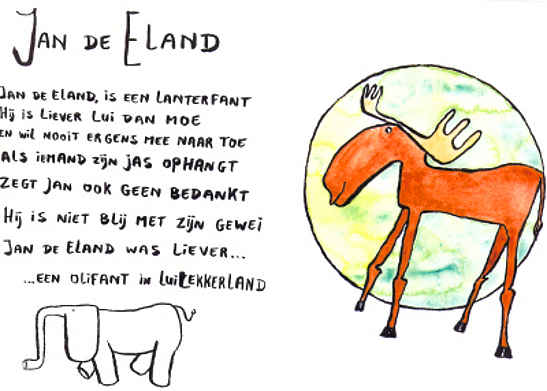 JAN DE ELAND
JAN DE ELAND, IS EEN LANTERFANT
HIJ IS LIEVER LUI DAN MOE
EN WIL NOOIT ERGENS MEE NAAR TOE
ALS IEMAND ZIJN JAS OPHANGT
ZEGT JAN OOK GEEN BEDANKT
HIJ IS NIET BLIJ MET ZIJN GEWEI
JAN DE ELAND WAS LIEVER...
...EEN OLIFANT IN LUILEKKERLAND